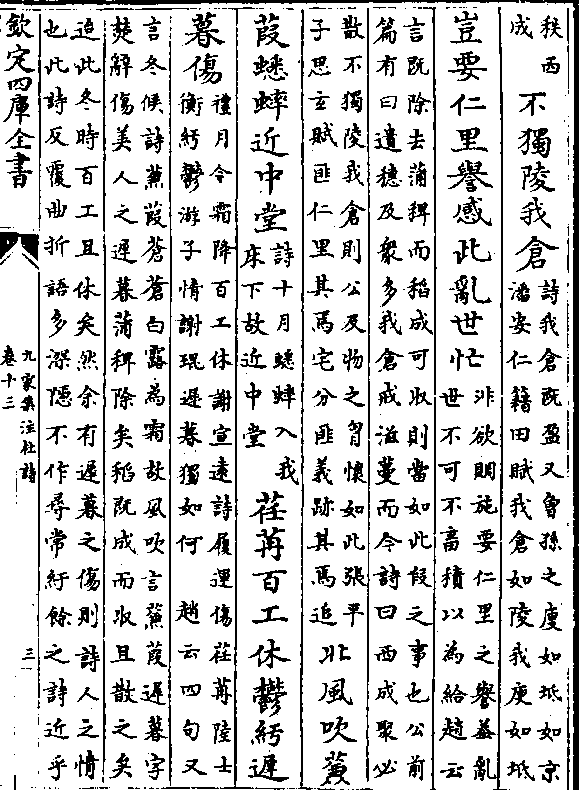 秩西
成
不獨陵我倉
詩我倉既盈又曾孫之庾如坻如京
潘安仁籍田賦我倉如陵我庾如坻
豈要仁里譽感此亂世忙
非欲期施要仁里之譽葢亂
世不可不畜積以為給趙云
言既除去蒲稗而稻成可收則當如此段之事也公前
篇有曰遺穗及衆多我倉戒滋蔓而今詩曰西成聚必
散不獨陵我倉則公及物之胷懷如此張平
子思玄賦匪仁里其焉宅兮匪義跡其焉追
北風吹蒹
葭蟋蟀近中堂
詩十月蟋蟀入我
床下故近中堂
荏苒百工休鬱紆遲
暮傷
禮月令霜降百工休謝宣遠詩履運傷荏苒陸士
衡紆鬱游子情謝琨遲暮獨如何 趙云四句又
言冬候詩蒹葭蒼蒼白露為霜故風吹言蒹葭遲暮字
楚辭傷美人之遲暮蒲稗除矣稻既成而收且散之矣
迨此冬時百工且休矣然余有遲暮之傷則詩人之情
也此詩反覆曲折語多深隱不作尋常紆餘之詩近乎
欽定四庫全書
九家集注杜詩
卷十三
三